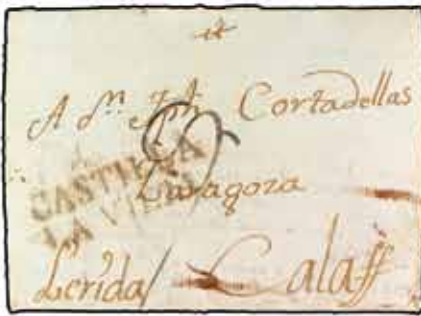 A Dn. Cortadellas
CASTILLA
LA VIEJA
Zaragoza
Lerida / Calaff